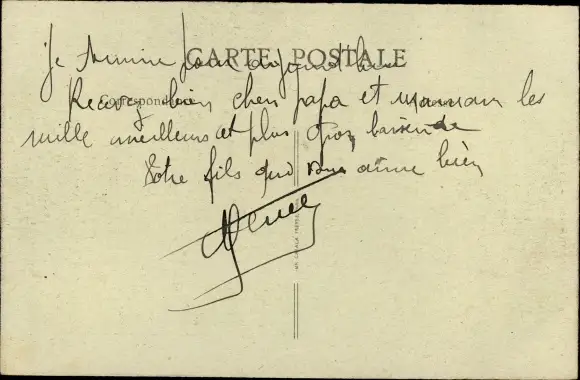 CARTE POSTALE
Correspondance
Je termine pour aujourd'hui
Recevez bien chers papa et maman les
mille meilleurs et plus gros baisers de
Votre fils qui vous aime bien